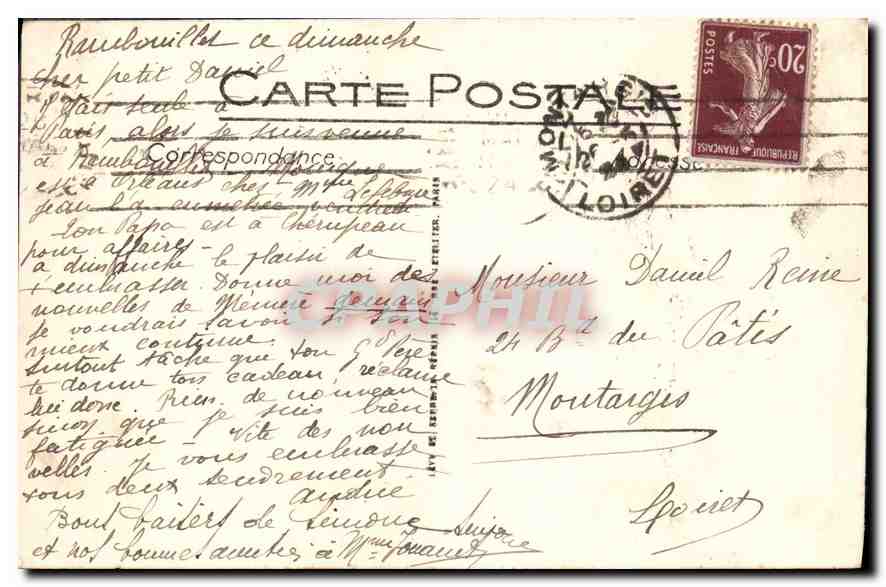 Rambouillet ce dimanche
Cher petit Daniel
CARTE POSTALE
J'étais seule à
Paris, alors je suis venue
à Rambouillet Monique
Correspondance
est à Orléans chez Mme Lefebvre
Jean l'a emmenée vendredi
Ton Papa est à Chérupeau
pour affaires -
à dimanche le plaisir de
t'embrasser. Donne moi des
nouvelles de Mémère demain
je voudrais savoir si son
mieux continue.
Surtout tâche que ton Gd Père
te donne ton cadeau, réclame
lui donc. Rien de nouveau
sinon que je suis bien
fatiguée - Vite des nou
velles. Je vous embrasse
tous deux tendrement
André
Bons baisers de Simone
et nos bonnes amitiés à Mme
REPUBLIQUE FRANÇAISE
POSTES
20c
LOIRET
Monsieur Daniel Reine
24 Bd du Pâtis
Montargis
Loiret
LEVY ET NEURDEIN REUNIS PARIS
CPAPHIL